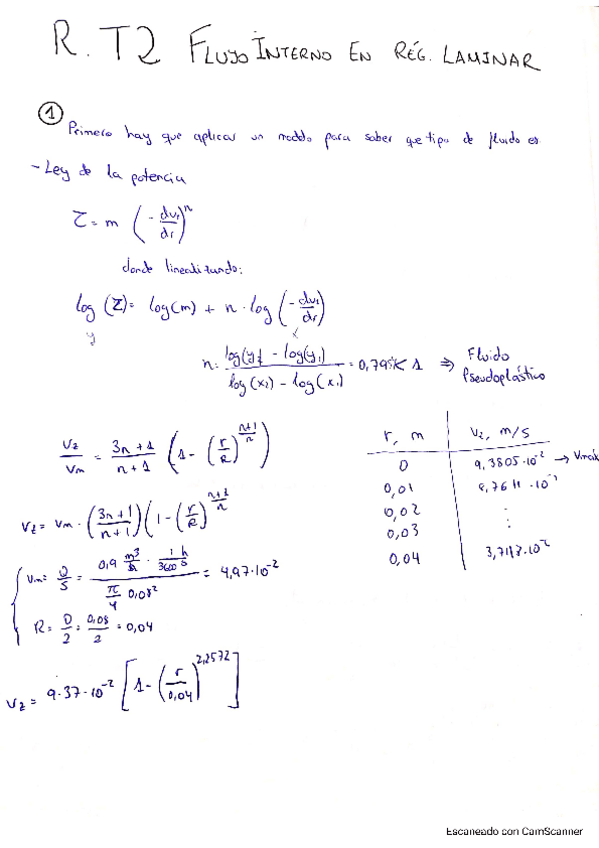 R. T2 FLUJO INTERNO EN RÉG. LAMINAR
①
Primero hay que aplicar un modelo para saber que tipo de fluido es
- Ley de la potencia
τ = m (- dvz/dr)^n
donde linealizando:
log (τ) = log(m) + n · log (- dvz/dr)
y x
n = (log(y2) - log(y1)) / (log(x2) - log(x1)) = 0,795 < 1 ⇒ Fluido
Pseudoplástico
vz/vm = (3n+1)/(n+1) (1 - (r/R)^((n+1)/n))
vz = vm · ((3n+1)/(n+1)) (1 - (r/R)^((n+1)/n)
vm = Q/S = (0,9 m³/h · 1 h/3600 s) / (π/4 0,08²) = 4,97·10⁻²
R = D/2 = 0,08/2 = 0,04
vz = 9.37·10⁻² [1 - (r/0,04)^2,2572]
r, m vz, m/s
0 9,3805·10⁻² → vmáx
0,01
0,02 :
0,03
0,04
Escaneado con CamScanner